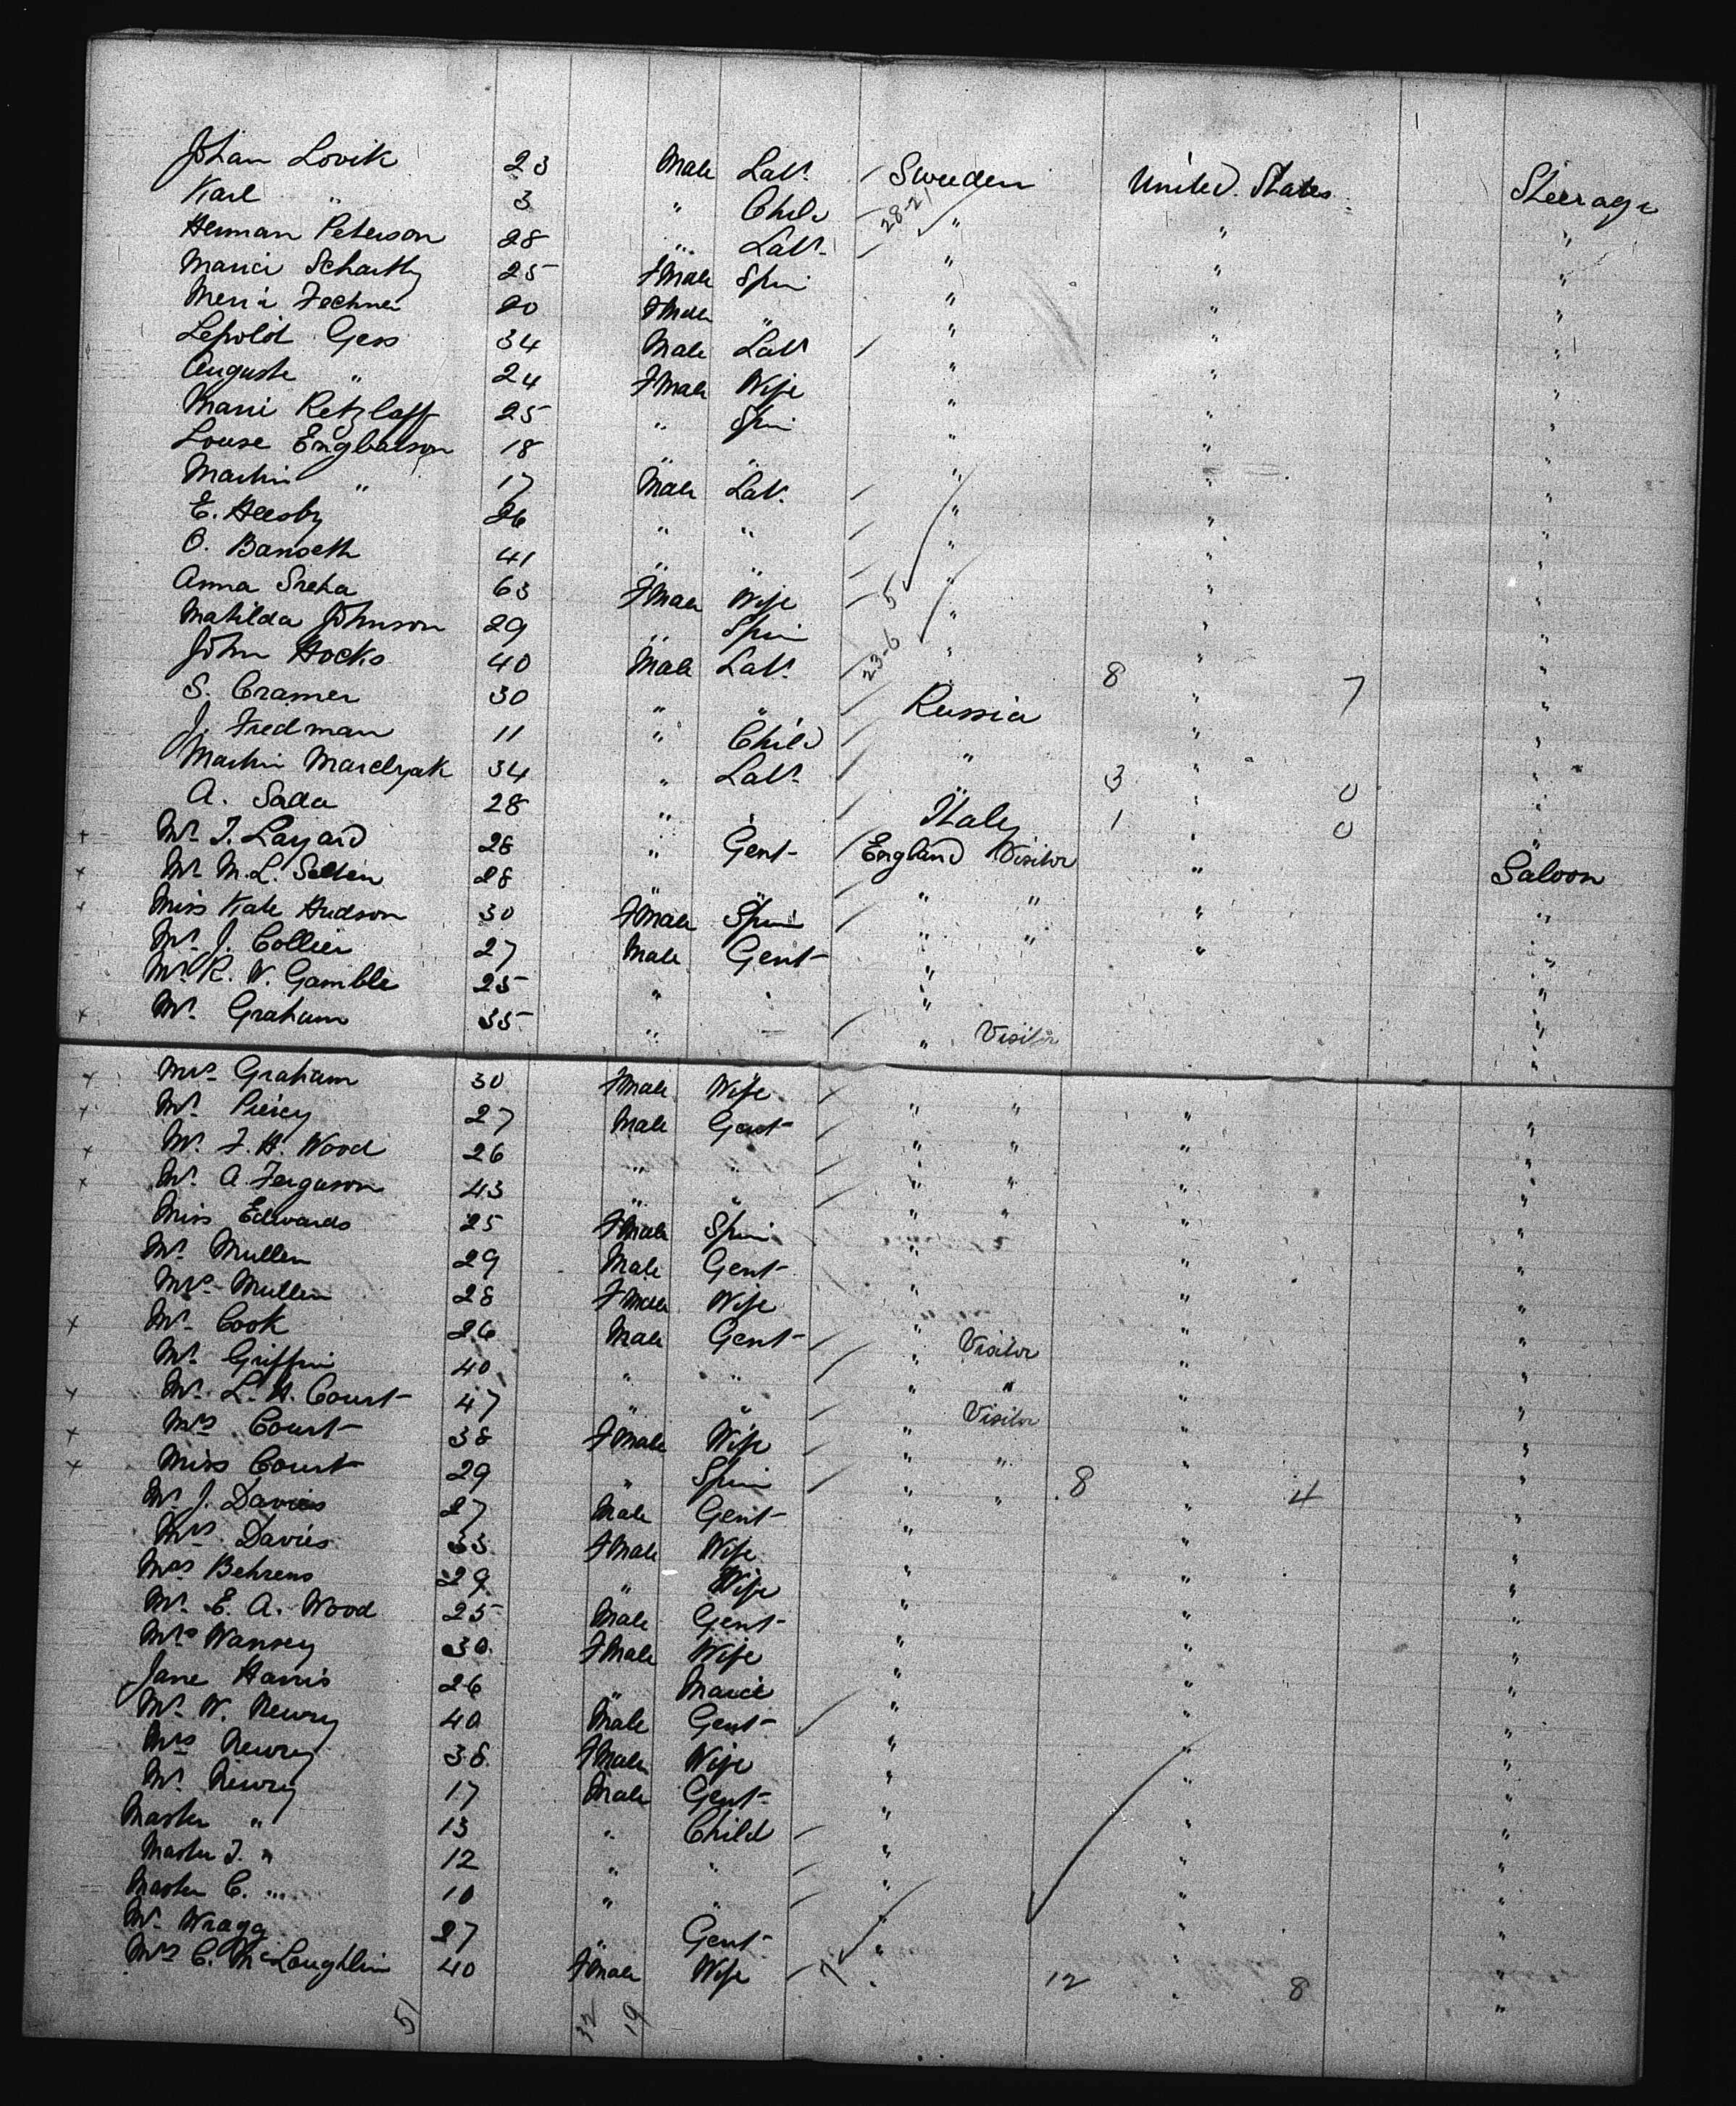 Johan Lovik 23 Male Labr / Sweden United States Steerage
Karl " 3 " Child / 28-21 " " "
Herman Peterson 28 " Labr / " " "
Maria Schartly 25 FMale Spin " " "
Maria Fechner 20 FMale " " " "
Lepold Gess 34 Male Labr / " " "
Auguste " 24 FMale Wife " " "
Marie Retzlaff 25 " Spin " " "
Louse Engbarson 18 " " " " "
Martin " 17 Male Labr / " " "
E. Heesby 26 " " / " " "
O. Banseth 41 " " / " " "
Anna Sreha 63 FMale Wife / 5 " " "
Matilda Johnson 29 " Spin " " "
John Hocks 40 Male Labr / 23-6 " 8 " 7 "
S. Cramer 30 " " / Russia " "
J. Fredman 11 " Child / " " "
Martin Marclryak 34 " Labr / " 3 " 0 "
A. Sada 28 " " / Italy 1 " 0 "
+ Mr. J. Layard 28 " Gent / England Visitor " Saloon
x Mr. M. L. Selten 28 " " / " " " "
x Miss Kate Hudson 30 FMale Spin / " " " "
Mr. J. Collier 27 Male Gent " "
Mr. R. W. Gamble 25 " " " "
x Mr. Graham 35 " - / " Visitor "
x Mrs. Graham 30 FMale Wife / " " " "
x Mr. Piercy 27 Male Gent / " " " "
x Mr. F. H. Wood 26 " " / " " " "
x Mr. A. Ferguson 43 " " / " " " "
Miss Edwards 25 FMale Spin " " "
Mr. Mullen 29 Male Gent " " "
Mrs. Mullen 28 FMale Wife " " "
x Mr. Cook 26 Male Gent / " Visitor " "
Mr. Griffin 40 " " / " " " "
x Mr. L. H. Court 47 " " / " Visitor " "
x Mrs Court 38 FMale Wife / " " " "
x Miss Court 29 " Spin / " " 8 " 4 "
Mr. J. Davies 27 Male Gent " " "
Mrs. Davies 33 FMale Wife " " "
Mrs Behrens 29 " Wife " " "
Mr. E. A. Wood 25 Male Gent " " "
Mrs Wansey 30 FMale Wife " " "
Jane Harris 26 " Maid " " "
Mr. W. Newry 40 Male Gent / " " "
Mrs Newry 38 FMale Wife " " "
Mr. Newry 17 Male Gent " " "
Master " 13 " Child / " " "
Master J. " 12 " " / " " "
Master C. " 10 " " / " " "
Mr. Wragg 27 " Gent " " "
Mrs C. McLoughlin 40 FMale Wife / 7 " 12 " 8 "
51 32 19